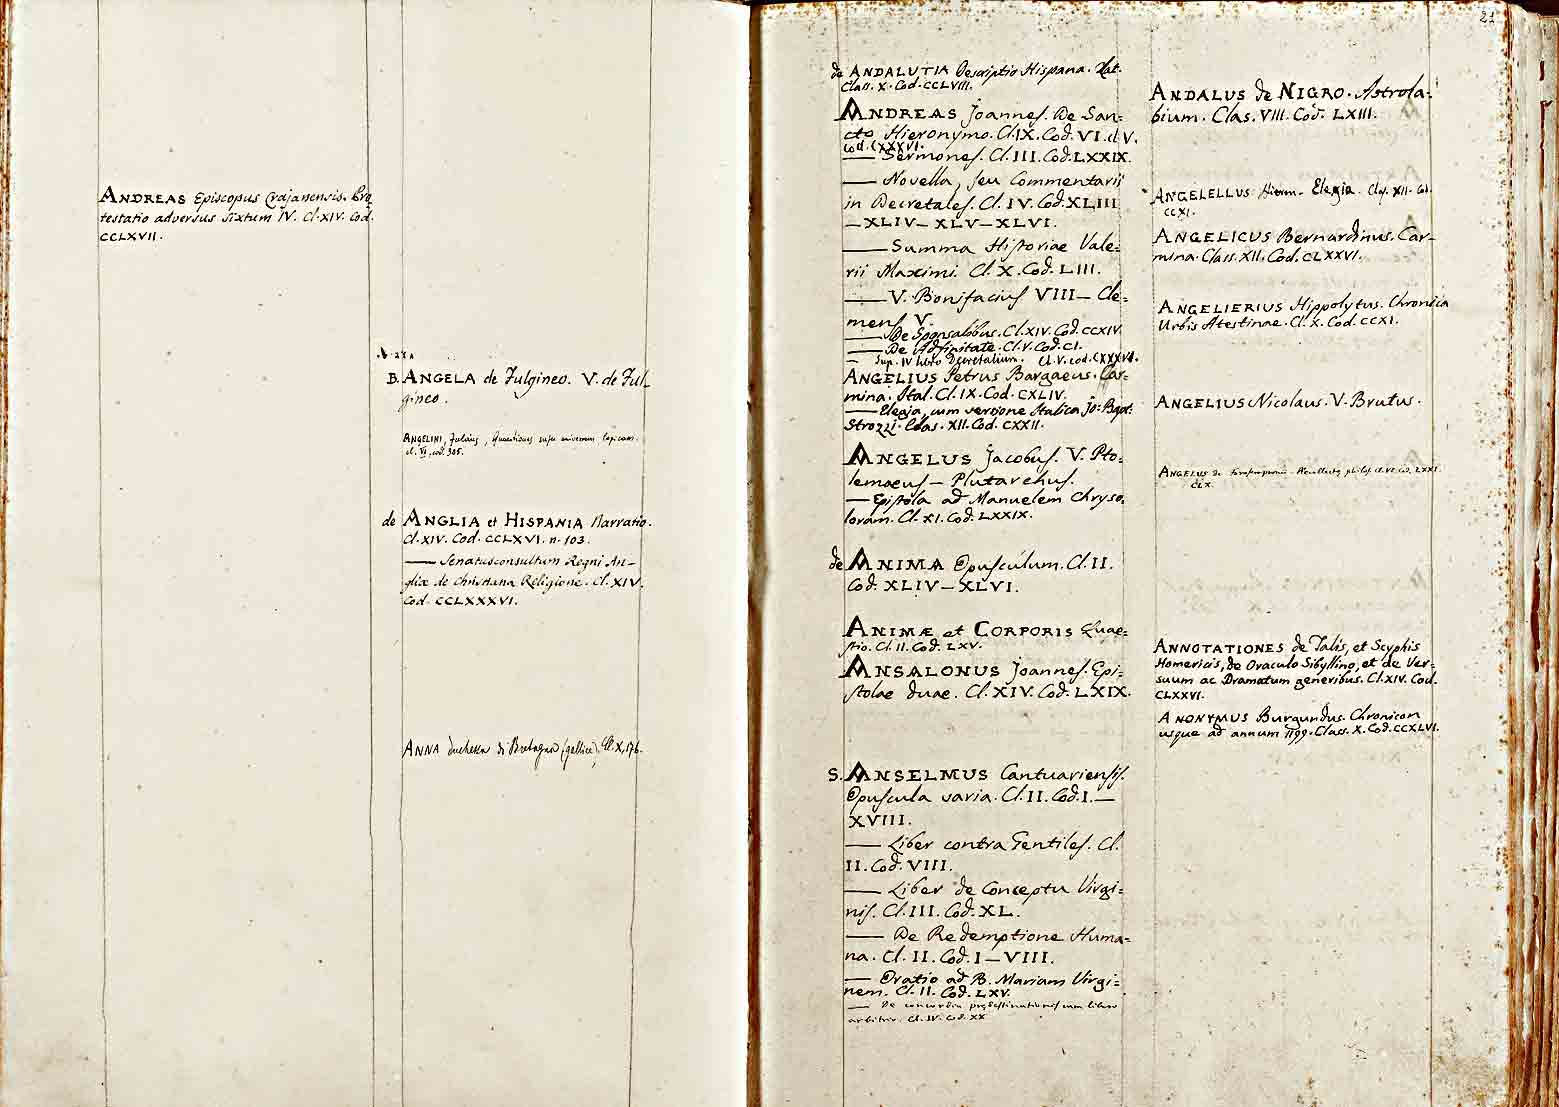 ANDREAS Episcopus Crajanensis. Pro
testatio adversus Sixtum IV. Cl. XIV. Cod.
CCLXVII.
B. ANGELA de Fulgineo. V. de Ful
gineo.
ANGELINI, Fulvius, Quaestiones
cl. VI, cod. 305.
de ANGLIA et HISPANIA Narratio.
Cl. XIV. Cod. CCLXVI. n. 103.
— Senatusconsultum Regni An-
gliæ de Christiana Religione. Cl. XIV.
Cod. CCLXXXVI.
ANNA duchessa di Bretagna (gallice), Cl. X, 176.
21
de ANDALUTIA Descriptio Hispana. Lat.
Class. X. Cod. CCLVIII.
ANDREAS Joannes. De San=
cto Hieronymo. Cl. IX. Cod. VI. cl. V.
cod. CXXXVI.
— Sermones. Cl. III. Cod. LXXIX.
— Novella, seu Commentarii
in Decretales. Cl. IV. Cod. XLIII
— XLIV — XLV — XLVI.
— Summa Historiae Vale=
rii Maximi. Cl. X. Cod. LIII.
— V. Bonifacius VIII — Cle=
mens V.
— De Sponsalibus. Cl. XIV. Cod. CCXIV.
— De Affinitate. Cl. V. Cod. CI.
— Sup. IV libro Decretalium. Cl. V. cod. CXXXVI.
ANGELIUS Petrus Bargaeus. Car=
mina. Ital. Cl. IX. Cod. CXLIV.
— Elegia, cum versione Italica Jo: Bapt:
Strozzi. Clas. XII. Cod. CXXII.
ANGELUS Jacobus. V. Pto=
lemaeus — Plutarchus.
— Epistola ad Manuelem Chryso
loram. Cl. XI. Cod. LXXIX.
de ANIMA Opusculum. Cl. II.
Cod. XLIV — XLVI.
ANIMÆ et CORPORIS Quae=
stio. Cl. II. Cod. LXV.
ANSALONUS Joannes. Epi=
stolae duae. Cl. XIV. Cod. LXIX.
S. ANSELMUS Cantuariensis.
Opuscula varia. Cl. II. Cod. I. —
XVIII.
— Liber contra Gentiles. Cl.
II. Cod. VIII.
— Liber de Conceptu Virgi=
nis. Cl. III. Cod. XL.
— De Redemptione Huma=
na. Cl. II. Cod. I — VIII.
— Oratio ad B. Mariam Virgi=
nem. Cl. II. Cod. LXV.
— De concordia praedestinationis cum libero
arbitrio. Cl. IV. Cod. XX
ANDALUS de NIGRO. Astrola=
bium. Clas. VIII. Cod. LXIII.
ANGELELLUS Hieron. Elegia. Clas. XII. Cod.
CCXI.
ANGELICUS Bernardinus. Car-
mina. Class. XII. Cod. CLXXVI.
ANGELIERIUS Hippolytus. Chronica
Urbis Atestinae. Cl. X. Cod. CCXI.
ANGELIUS Nicolaus. V. Brutus.
ANGELUS de Cl. VI. Cod. LXXI.
CLX.
ANNOTATIONES de Talis, et Scyphis
Homericis, de Oraculo Sibyllino, et de Ver=
suum ac Dramatum generibus. Cl. XIV. Cod.
CLXXVI.
ANONYMUS Burgundus. Chronicon
usque ad annum 1199. Class. X. Cod. CCXLVI.